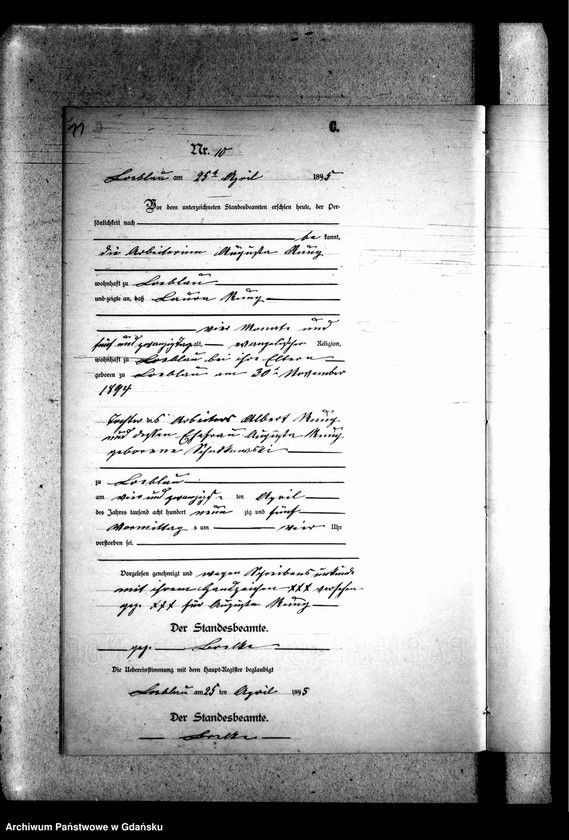 C.
Nr. 10
Loeblau am 25t April 1895
Vor dem unterzeichneten Standesbeamten erschien heute, der Per-
sönlichkeit nach
be kannt,
die Arbeiterin Augusta
wohnhaft zu Loeblau
und zeigte an, daß Laura
vier Monate und
fünf und zwanzig Tage alt, evangelischer Religion,
wohnhaft zu Loeblau bei ihre Eltern
geboren zu Loeblau am 30t November
1894
Tochter des Arbeiters Albert
und dessen Ehefrau Augusta
geborene
zu Loeblau
am vier und zwanzigst ten April
des Jahres tausend acht hundert neun zig und fünf
Vormittag s um vier Uhr
verstorben sei.
Vorgelesen genehmigt und wegen Schreibens unkunde
mit ihrem Handzeichen XXX versehen
gez. XXX für Augusta
Der Standesbeamte.
gez.
Die Uebereinstimmung mit dem Haupt-Register beglaubigt
Loeblau am 25 ten April 1895
Der Standesbeamte.
Archiwum Państwowe w Gdańsku